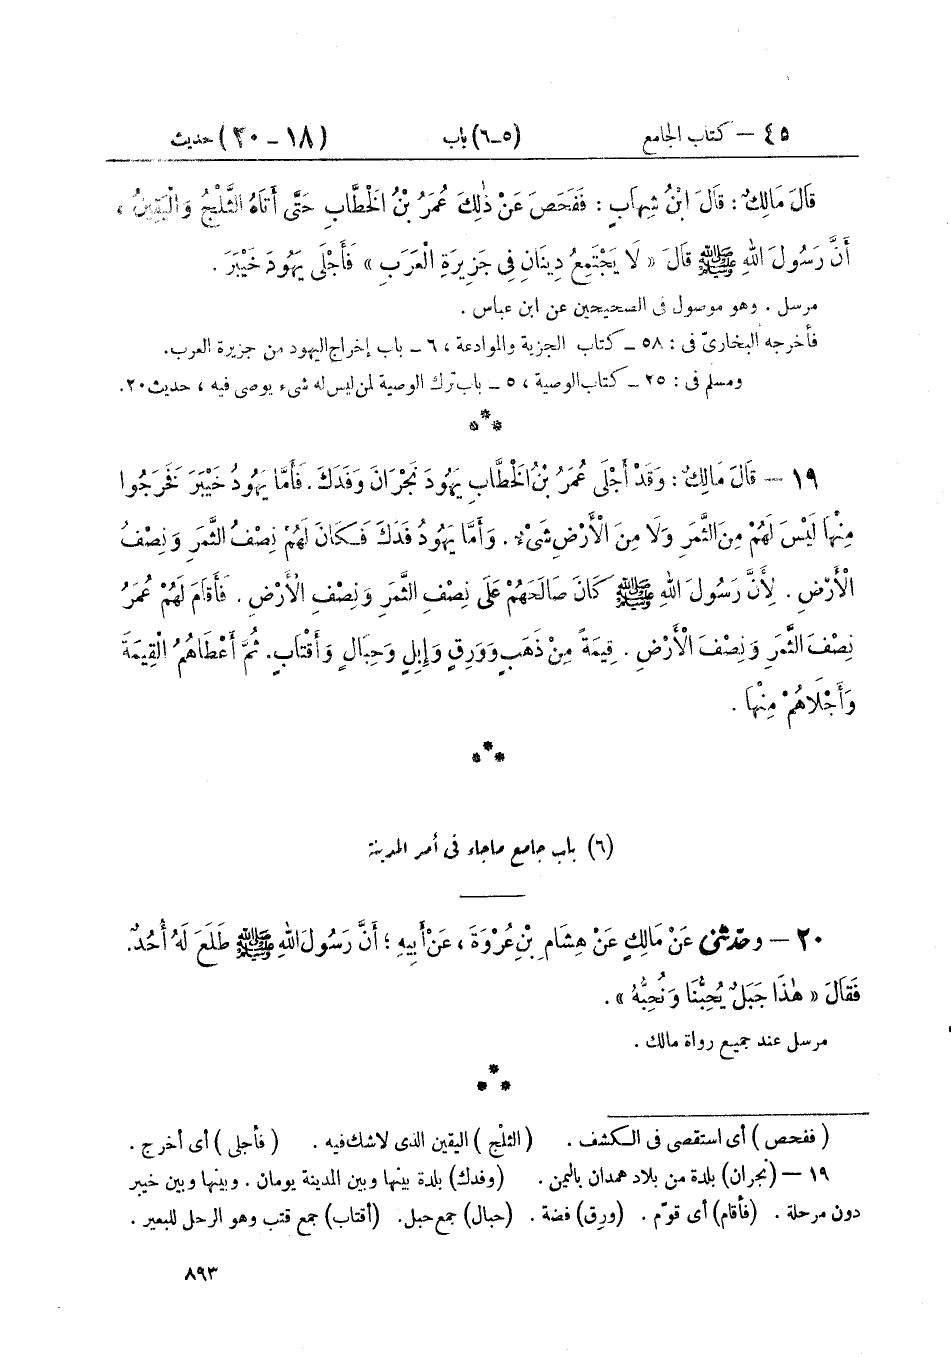 ٤٥ – كتاب الجامع (٥-٦) باب (١٨ - ٢٠) حديث
قَالَ مَالِكٌ : قَالَ ابْنُ شِهاَبٍ : فَفَحَصَ عَنْ ذٰلِكَ عُمَرُ بْنُ الْخَطَّابِ حَتَّى أَتَاهُ الثَّلْجُ وَالْيَقِينُ ،
أَنَّ رَسُولَ اللهِ ﷺ قَالَ « لَا يَجْتَمِعُ دِينَانِ فِي جَزِيرَةِ الْعَرَبِ » فَأَجْلَى يَهُودَ خَيْبَرَ .
مرسل . وهو موصول فى الصحيحين عن ابن عباس .
فأخرجه البخارىّ فى : ٥٨ – كتاب الجزية والموادعة ، ٦ – باب إخراج اليهود من جزيرة العرب.
ومسلم فى : ٢٥ – كتاب الوصية ، ٥ – باب ترك الوصية لمن ليس له شىء يوصى فيه ، حديث ٢٠.
***
١٩ – قَالَ مَالِكٌ : وَقَدْ أَجْلَى عُمَرُ بْنُ الْخَطَّابِ يَهُودَ نَجْرَانَ وَفَدَكَ . فَأَمَّا يَهُودُ خَيْبَرَ فَخَرَجُوا
مِنْهَا لَيْسَ لَهُمْ مِنَ الثَّمَرِ وَلَا مِنَ الْأَرْضِ شَيْءٌ . وَأَمَّا يَهُودُ فَدَكَ فَكَانَ لَهُمْ نِصْفُ الثَّمَرِ وَنِصْفُ
الْأَرْضِ . لِأَنَّ رَسُولَ اللهِ ﷺ كَانَ صَالَحَهُمْ عَلَى نِصْفِ الثَّمَرِ وَنِصْفِ الْأَرْضِ . فَأَقَامَ لَهُمْ عُمَرُ
نِصْفَ الثَّمَرِ وَنِصْفَ الْأَرْضِ . قِيمَةً مِنْ ذَهَبٍ وَوَرِقٍ وَإِبِلٍ وَحِبَالٍ وَأَقْتَابٍ. ثُمَّ أَعْطَاهُمُ الْقِيمَةَ
وَأَجْلَاهُمْ مِنْهَا .
***
(٦) باب جامع ماجاء فى أمر المدينة
٢٠ – وحدّثنى عَنْ مَالِكٍ عَنْ هِشَامِ بْنِ عُرْوَةَ ، عَنْ أَبِيهِ ؛ أَنَّ رَسُولَ اللهِ ﷺ طَلَعَ لَهُ أُحُدٌ.
فَقَالَ « هٰذَا جَبَلٌ يُحِبُّنَا وَنُحِبُّهُ » .
مرسل عند جميع رواة مالك .
***
( ففحص ) أى استقصى فى الكشف . ( الثلج ) اليقين الذى لاشك فيه . ( فأجلى ) أى أخرج .
١٩ – (نجران) بلدة من بلاد همدان باليمن . (وفدك) بلدة بينها وبين المدينة يومان . وبينها وبين خيبر
دون مرحلة . (فأقام) أى قوّم . (ورق) فضة . (حبال) جمع حبل. (أقتاب) جمع قتب وهو الرحل للبعير .
٨٩٣